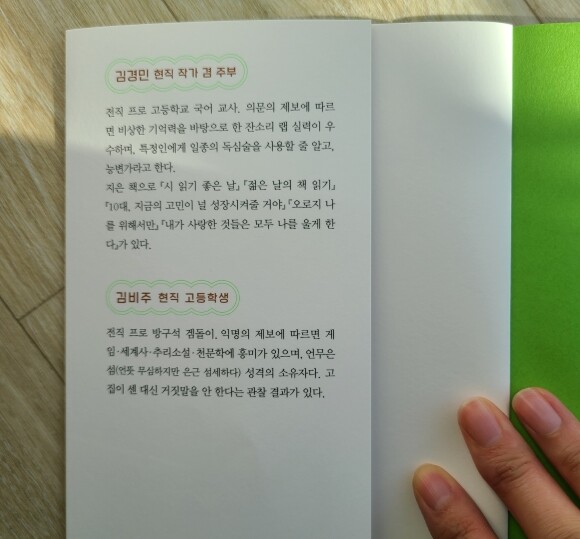 김경민 현직 작가 겸 주부
전직 프로 고등학교 국어 교사. 의문의 제보에 따르
면 비상한 기억력을 바탕으로 한 잔소리 랩 실력이 우
수하며, 특정인에게 일종의 독심술을 사용할 줄 알고,
능변가라고 한다.
지은 책으로 『시 읽기 좋은 날』 『젊은 날의 책 읽기』
『10대, 지금의 고민이 널 성장시켜줄 거야』 『오로지 나
를 위해서만』 『내가 사랑한 것들은 모두 나를 울게 한
다』가 있다.
김비주 현직 고등학생
전직 프로 방구석 겜돌이. 익명의 제보에 따르면 게
임·세계사·추리소설·천문학에 흥미가 있으며, 언무은
섬(언뜻 무심하지만 은근 섬세하다) 성격의 소유자다. 고
집이 센 대신 거짓말을 안 한다는 관찰 결과가 있다.